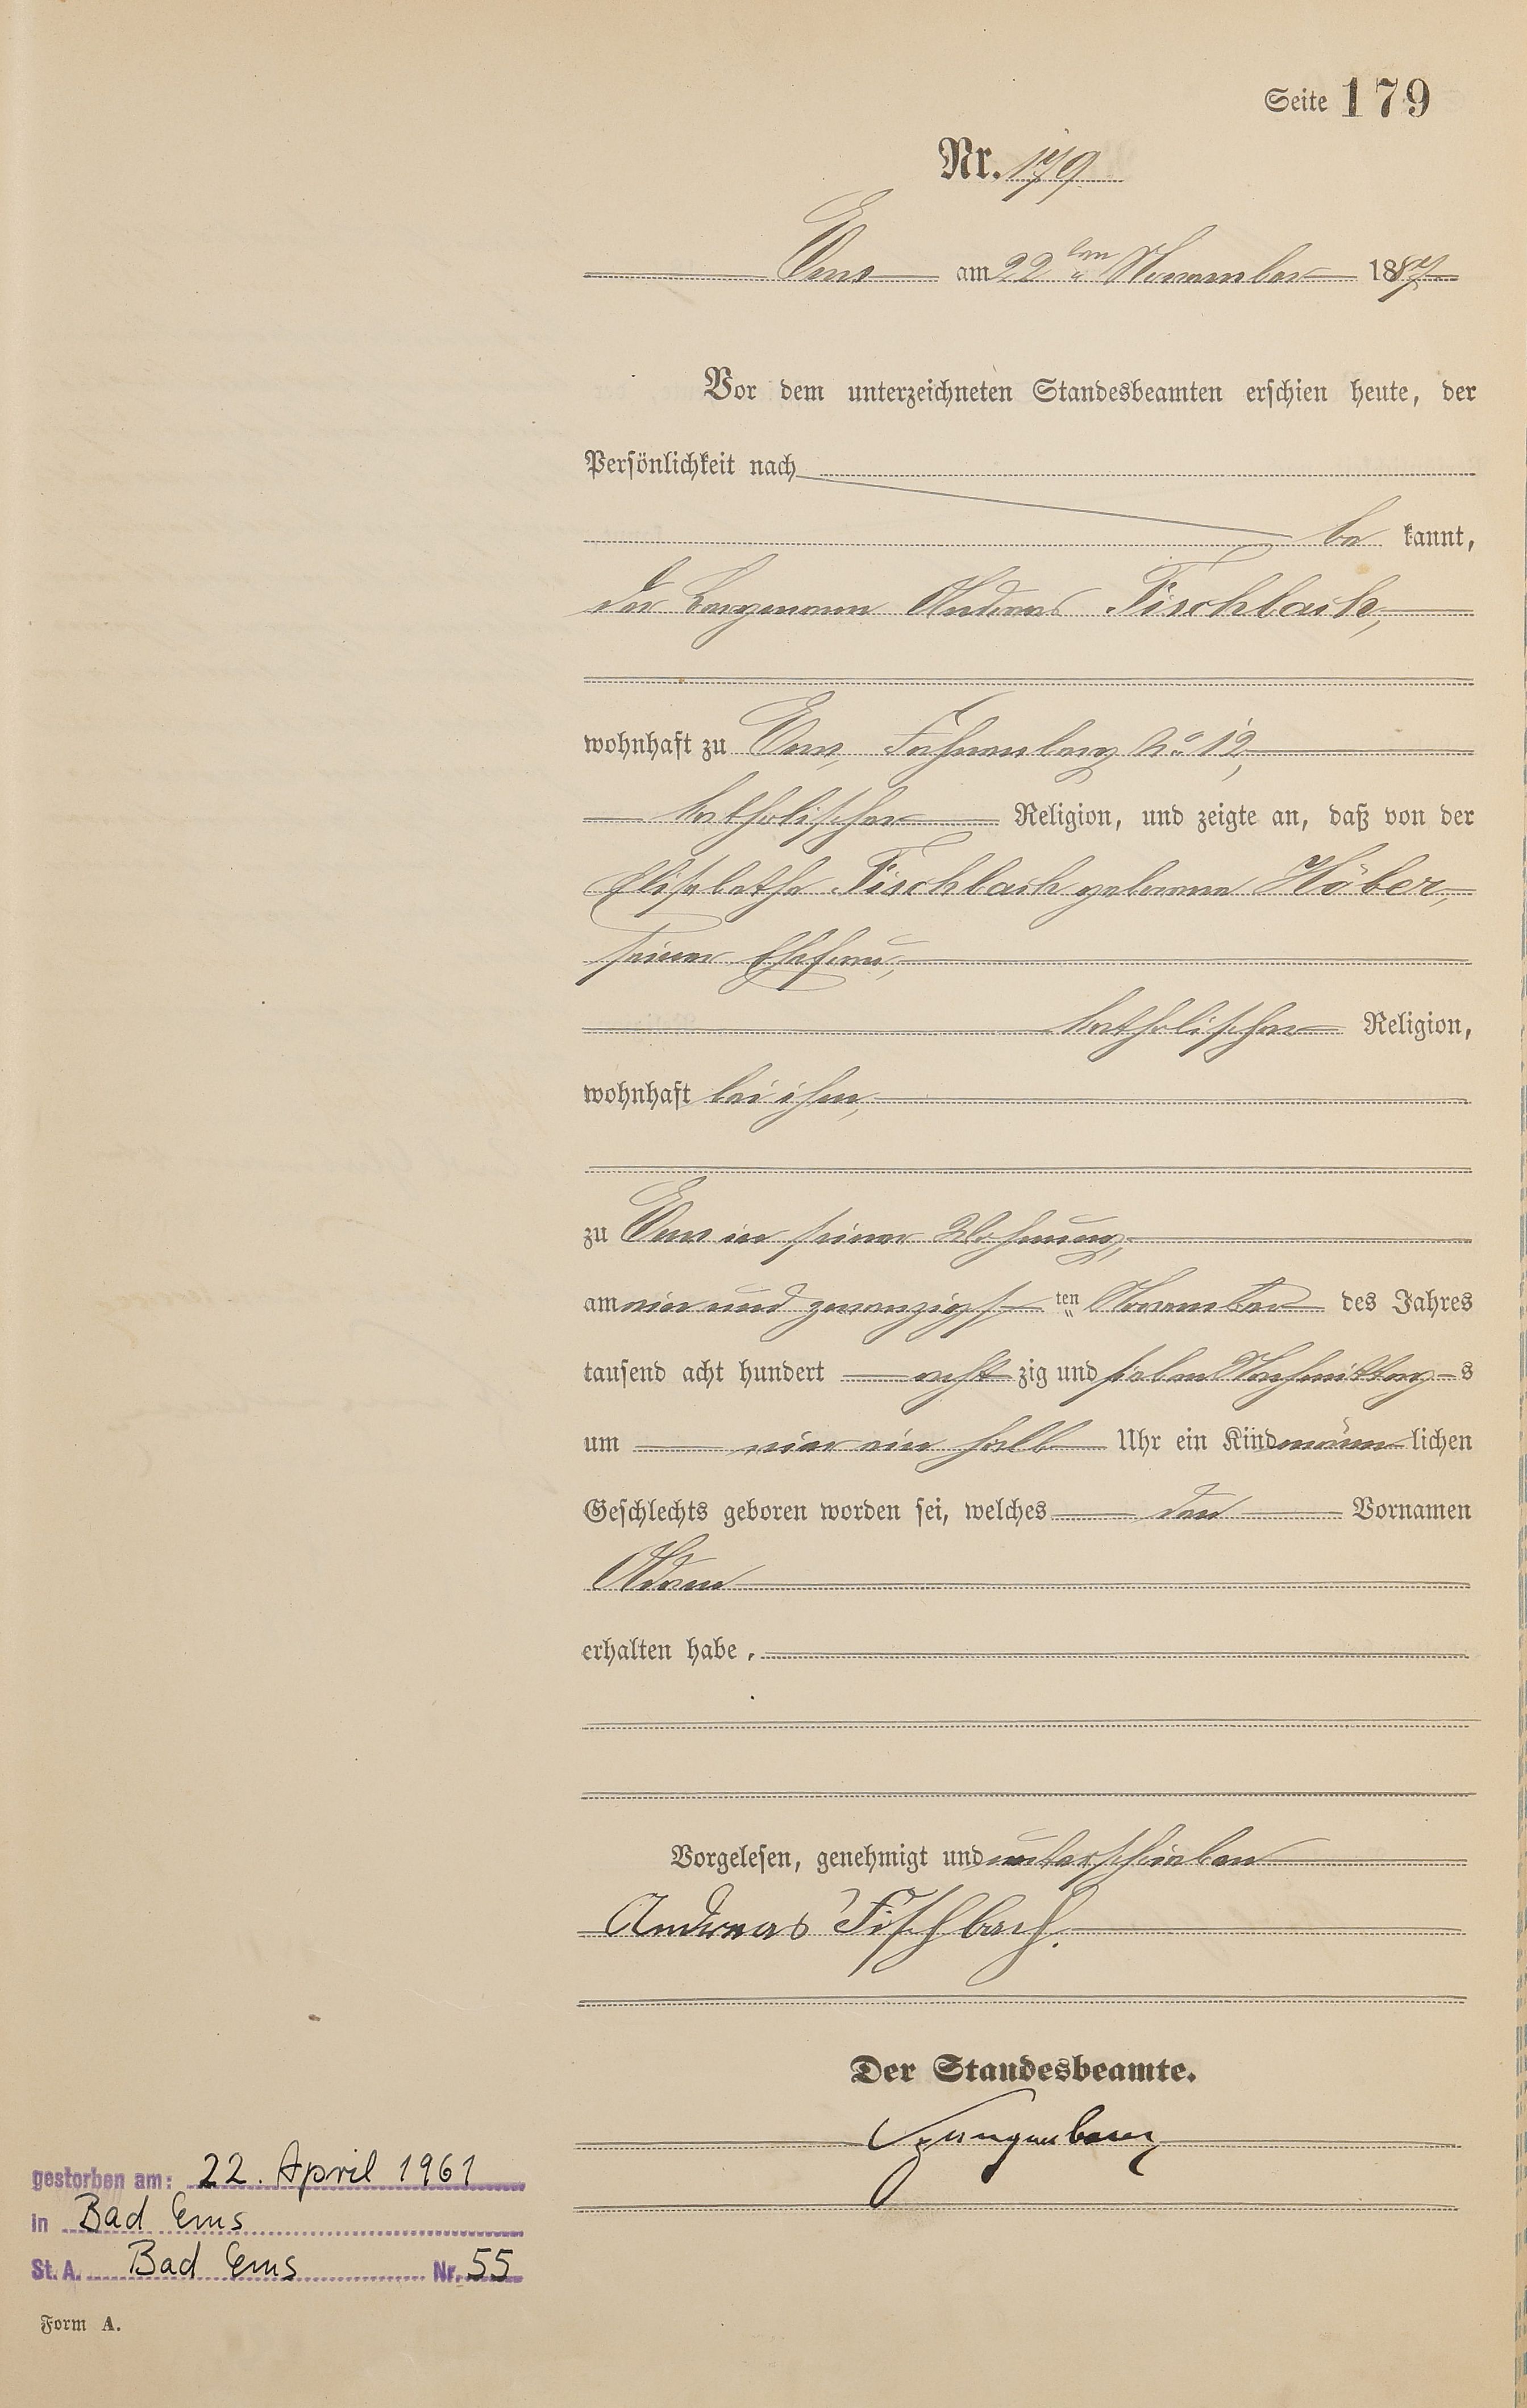 Seite 179
Nr. 179
Ems am 22ten November 1887
Vor dem unterzeichneten Standesbeamten erschien heute, der
Persönlichkeit nach
be kannt,
der Bergmann Andreas Fischbach,
wohnhaft zu Ems, No 12,
katholischer Religion, und zeigte an, daß von der
Elisabetha Fischbach geborene Höber,
seiner Ehefrau,
katholischer Religion,
wohnhaft bei ihm,
zu Ems in seiner Wohnung,
am ein und zwanzigs ten November des Jahres
tausend acht hundert acht zig und sieben Nachmittag s
um vier ein halb Uhr ein Kind männ lichen
Geschlechts geboren worden sei, welches den Vornamen
Adam
erhalten habe.
Vorgelesen, genehmigt und unterschrieben
Andreas Fischbach.
Der Standesbeamte.
gestorben am: 22. April 1961
in Bad Ems
St. A. Bad Ems Nr. 55
Form A.